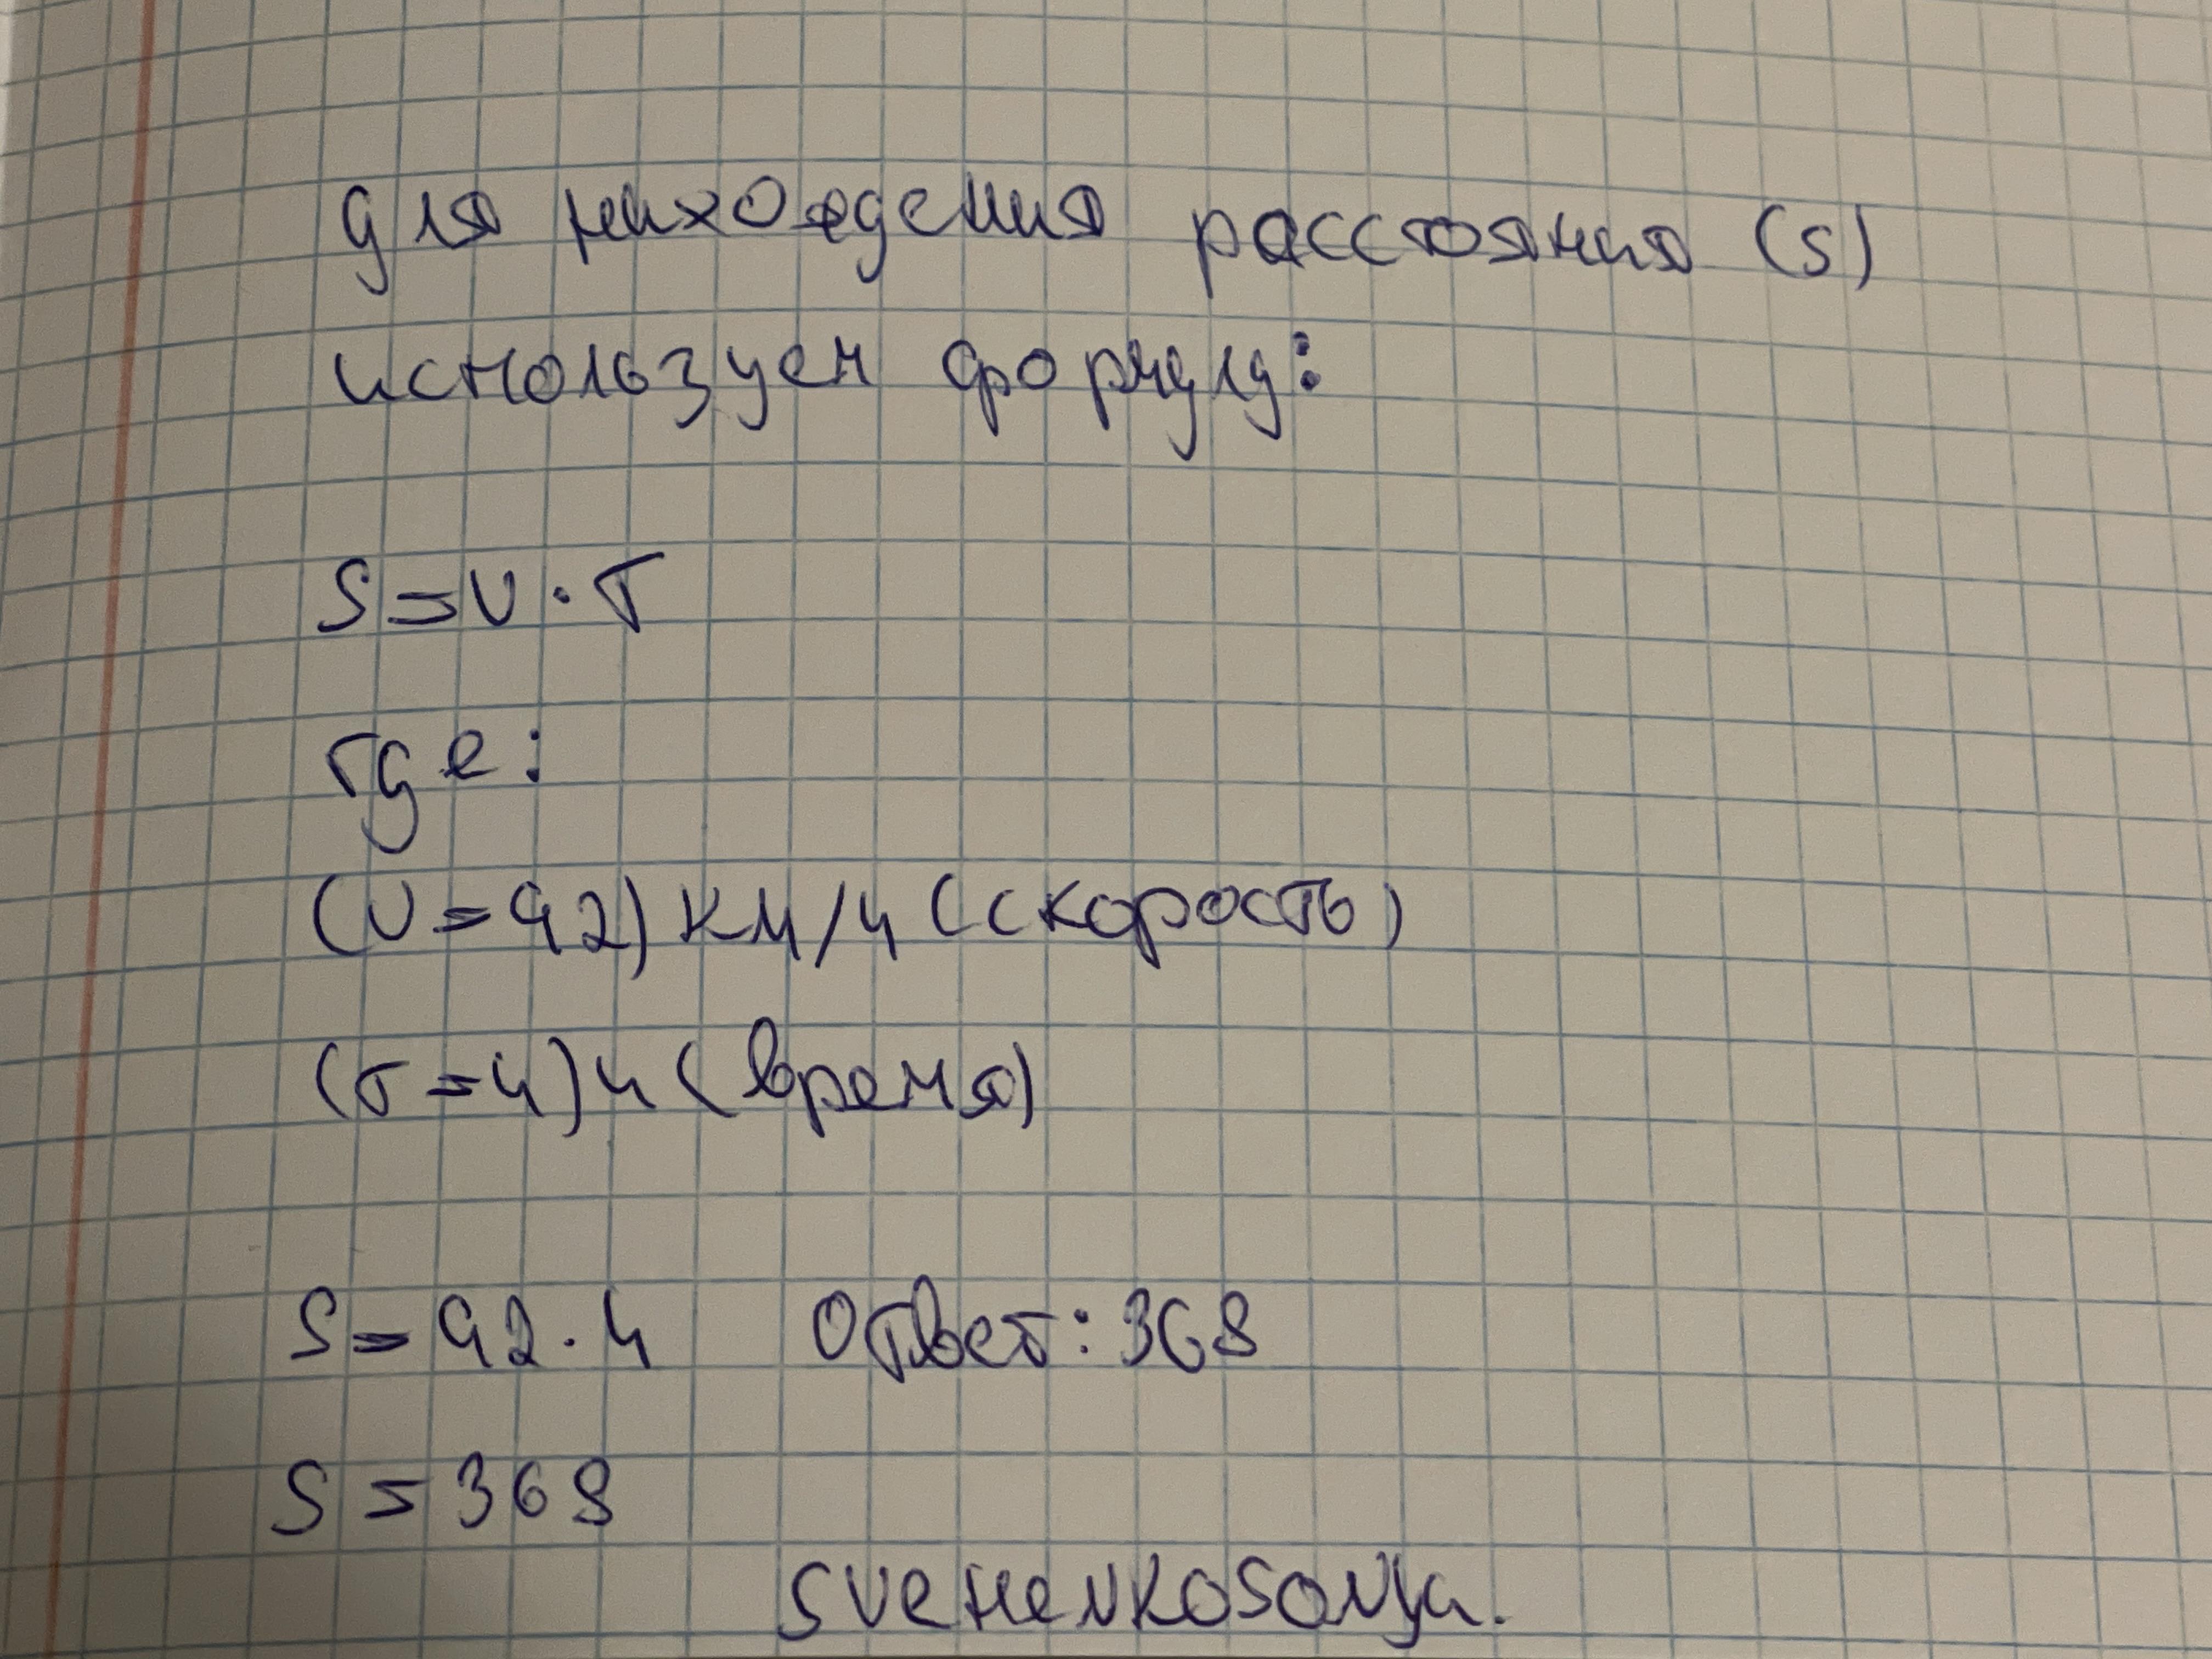 для нахождения расстояния (s)
используем формулу:
S=v·т
где:
(v=92) км/ч (скорость)
(т=4) ч (время)
S=92·4 Ответ: 368
S=368